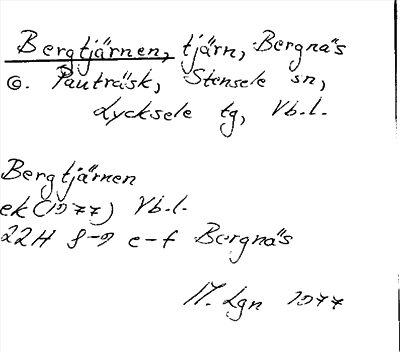 Bergtjärnen, tjärn, Bergnäs
o. Pauträsk, Stensele sn,
Lycksele tg, Vb.l.
Bergtjärnen
ek (1977) Vb.l.
22H 8-9 e-f Bergnäs
M. Lgn 1977